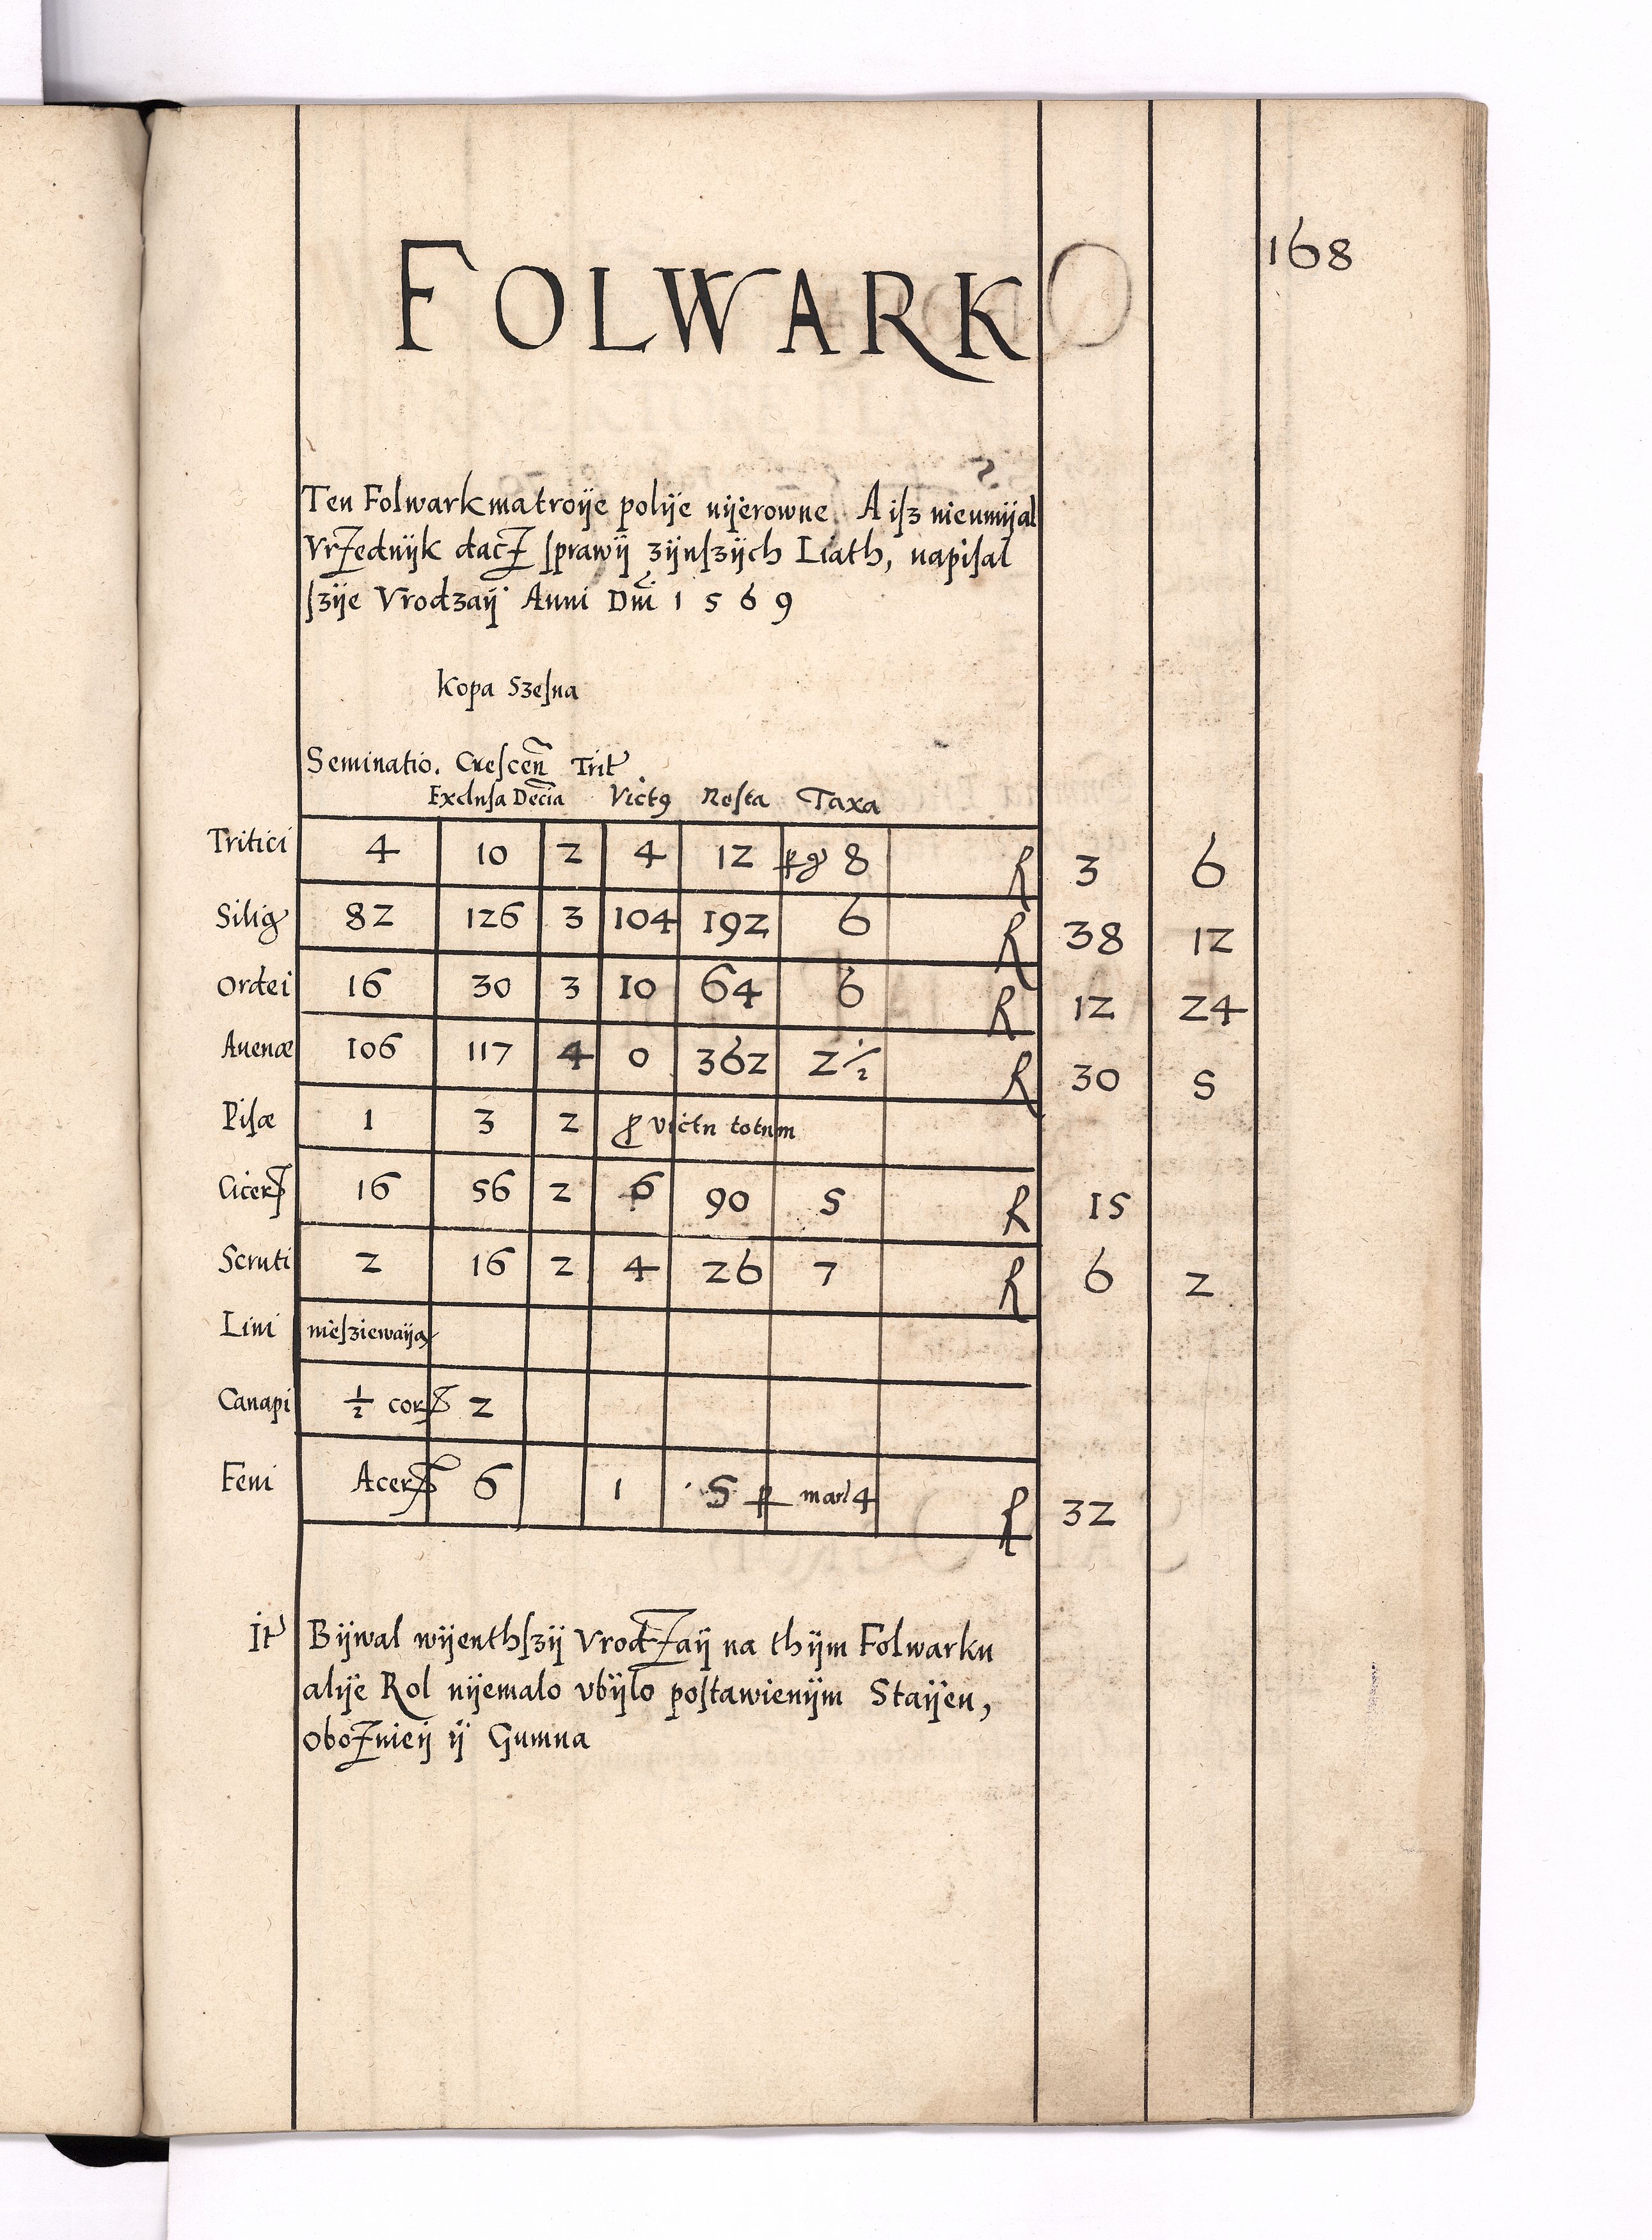 168
FOLWARK
Ten Folwark ma troÿe polÿe nÿerowne A iſz nieumÿal
Vrzednÿk dacz ſprawÿ zÿnſzÿch Liath, napiſal
ſzÿe Vrodzaÿ Anni Dm̃i 1569
Kopa Szeſna
Seminatio. Creſceñ Trit
Excluſa Decĩa Victꝰ Reſta Taxa
Tritici 4 10 2 4 12 ꝑ gͬ 8 R 3 6
Silig 82 126 3 104 192 6 R 38 12
Ordei 16 30 3 10 64 6 R 12 24
Auenæ 106 117 4 0 362 2 ½ R 30 5
Piſæ 1 3 2 ꝓ victu totum
Cicerꝭ 16 56 2 6 90 5 R 15
Scruti 2 16 2 4 26 7 R 6 2
Lini nieſziewaÿa
Canapi ½ corꝭ 2
Feni Acerꝭ 6 1 5 ꝑ mar 4 R 32
It Bÿwal wÿenthſzÿ Vrodzaÿ na thÿm Folwarku
alÿe Rol nÿemalo vbÿlo poſtawienÿm Staÿen,
oboznieÿ ÿ Gumna